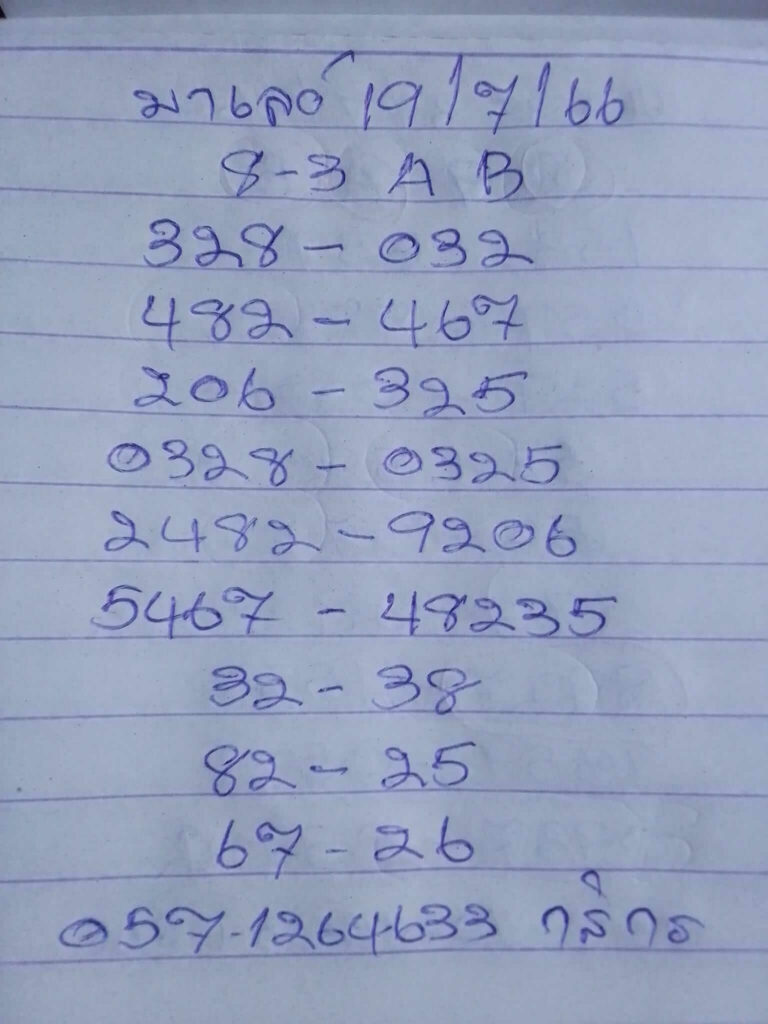 มาเลย์ 19/7/66
8-3 A B
328 - 032
482 - 467
206 - 325
0328 - 0325
2482 - 9206
5467 - 48235
32 - 38
82 - 25
67 - 26
057-1264633